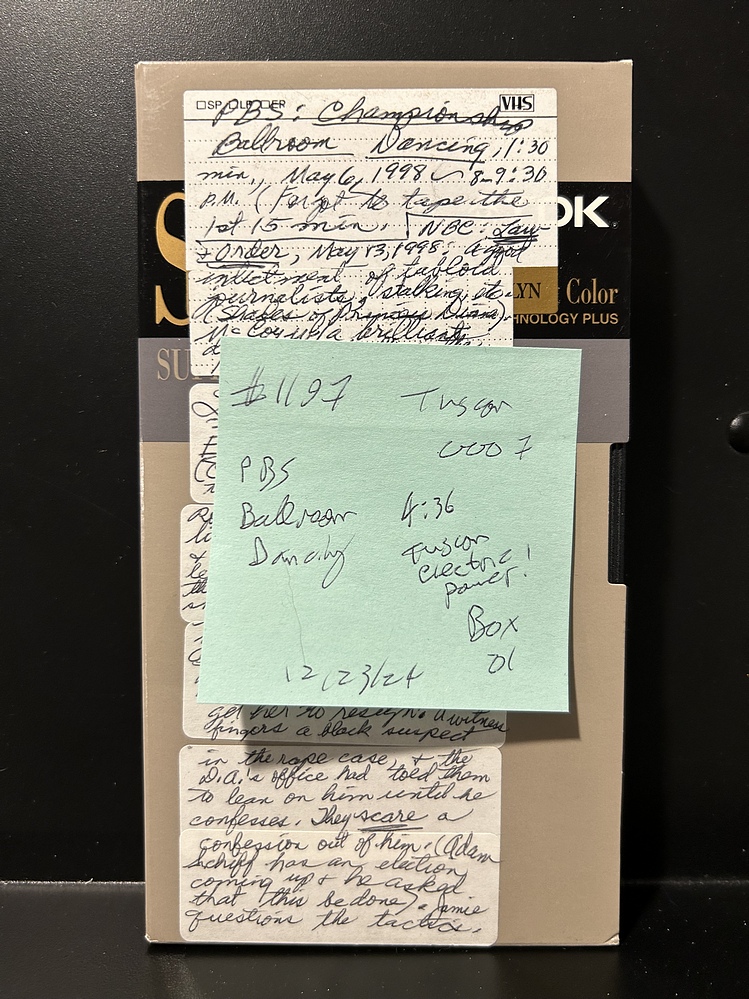 □SP □LP □EP VHS
PBS: Championship
Ballroom Dancing, 1:30
min., May 6, 1998 8-9:30
P.M. (Forgot to tape the
1st 15 min. NBC: Law
+ Order, May 13, 1998: a
indictment of tabloid
journalists, stalking, etc.
(Shades of Princess Diana).
McCoy in a brilliant
DK
LYN Color
HNOLOGY PLUS
SU
#1197 Tuscon
0007
PBS
Ballroom 4:36
Dancing Tuscon
electric!
power!
Box
01
12/23/24
get her to resign. A witness
fingers a black suspect
in the rape case, + the
D.A.'s office had told them
to lean on him until he
confesses. They scare a
confession out of him. (Adam
Schiff has an election
coming up + he asked
that this be done). Jamie
questions the tactics.